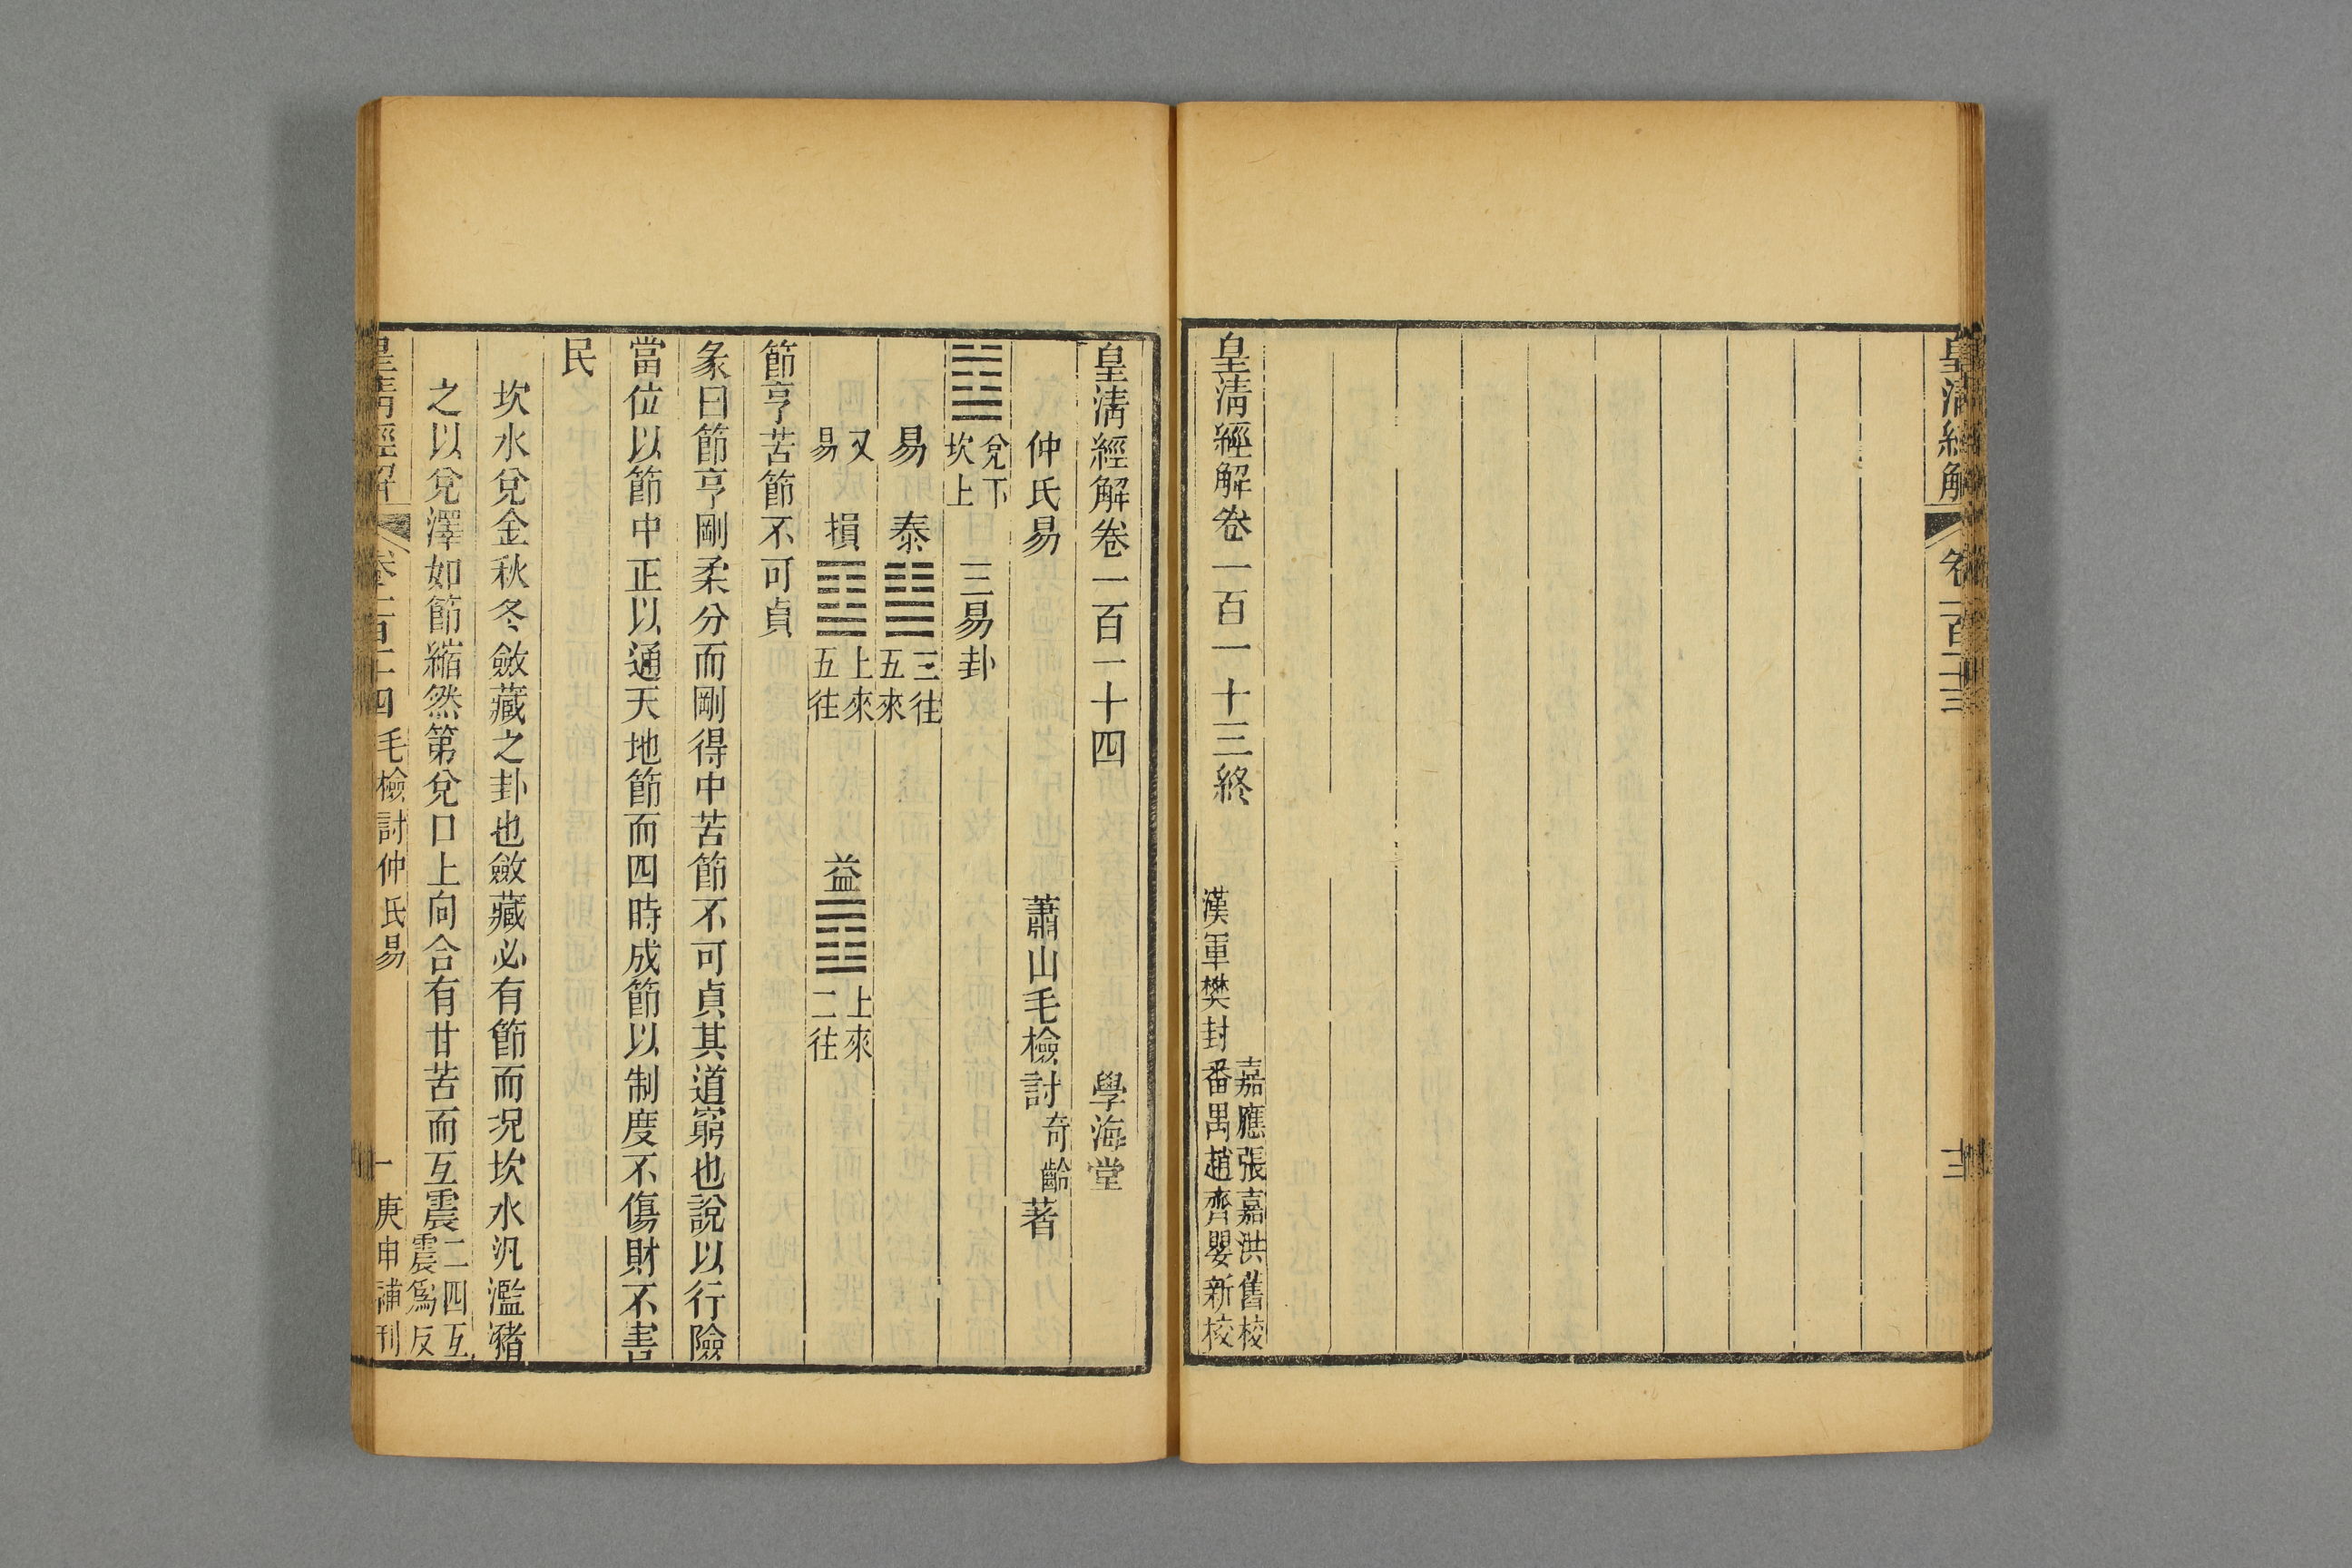 皇清經解 卷一百十三
皇清經解卷一百一十三終
嘉應張嘉洪舊校
漢軍樊封番禺趙齊嬰新校
皇清經解卷一百一十四 學海堂
仲氏易 蕭山毛檢討奇齡著
䷻兌下坎上 三易卦
易 泰䷊三往五來
又易 損䷨上來五往 益䷩上來二往
節亨苦節不可貞
彖曰節亨剛柔分而剛得中苦節不可貞其道窮也說以行險
當位以節中正以通天地節而四時成節以制度不傷財不害
民
坎水兌金秋冬斂藏之卦也斂藏必有節而況坎水汎濫豬
之以兌澤如節縮然第兌口上向合有甘苦而互震二四互震爲反
皇清經解 卷一百十四 毛檢討仲氏易 一 庚申補刊